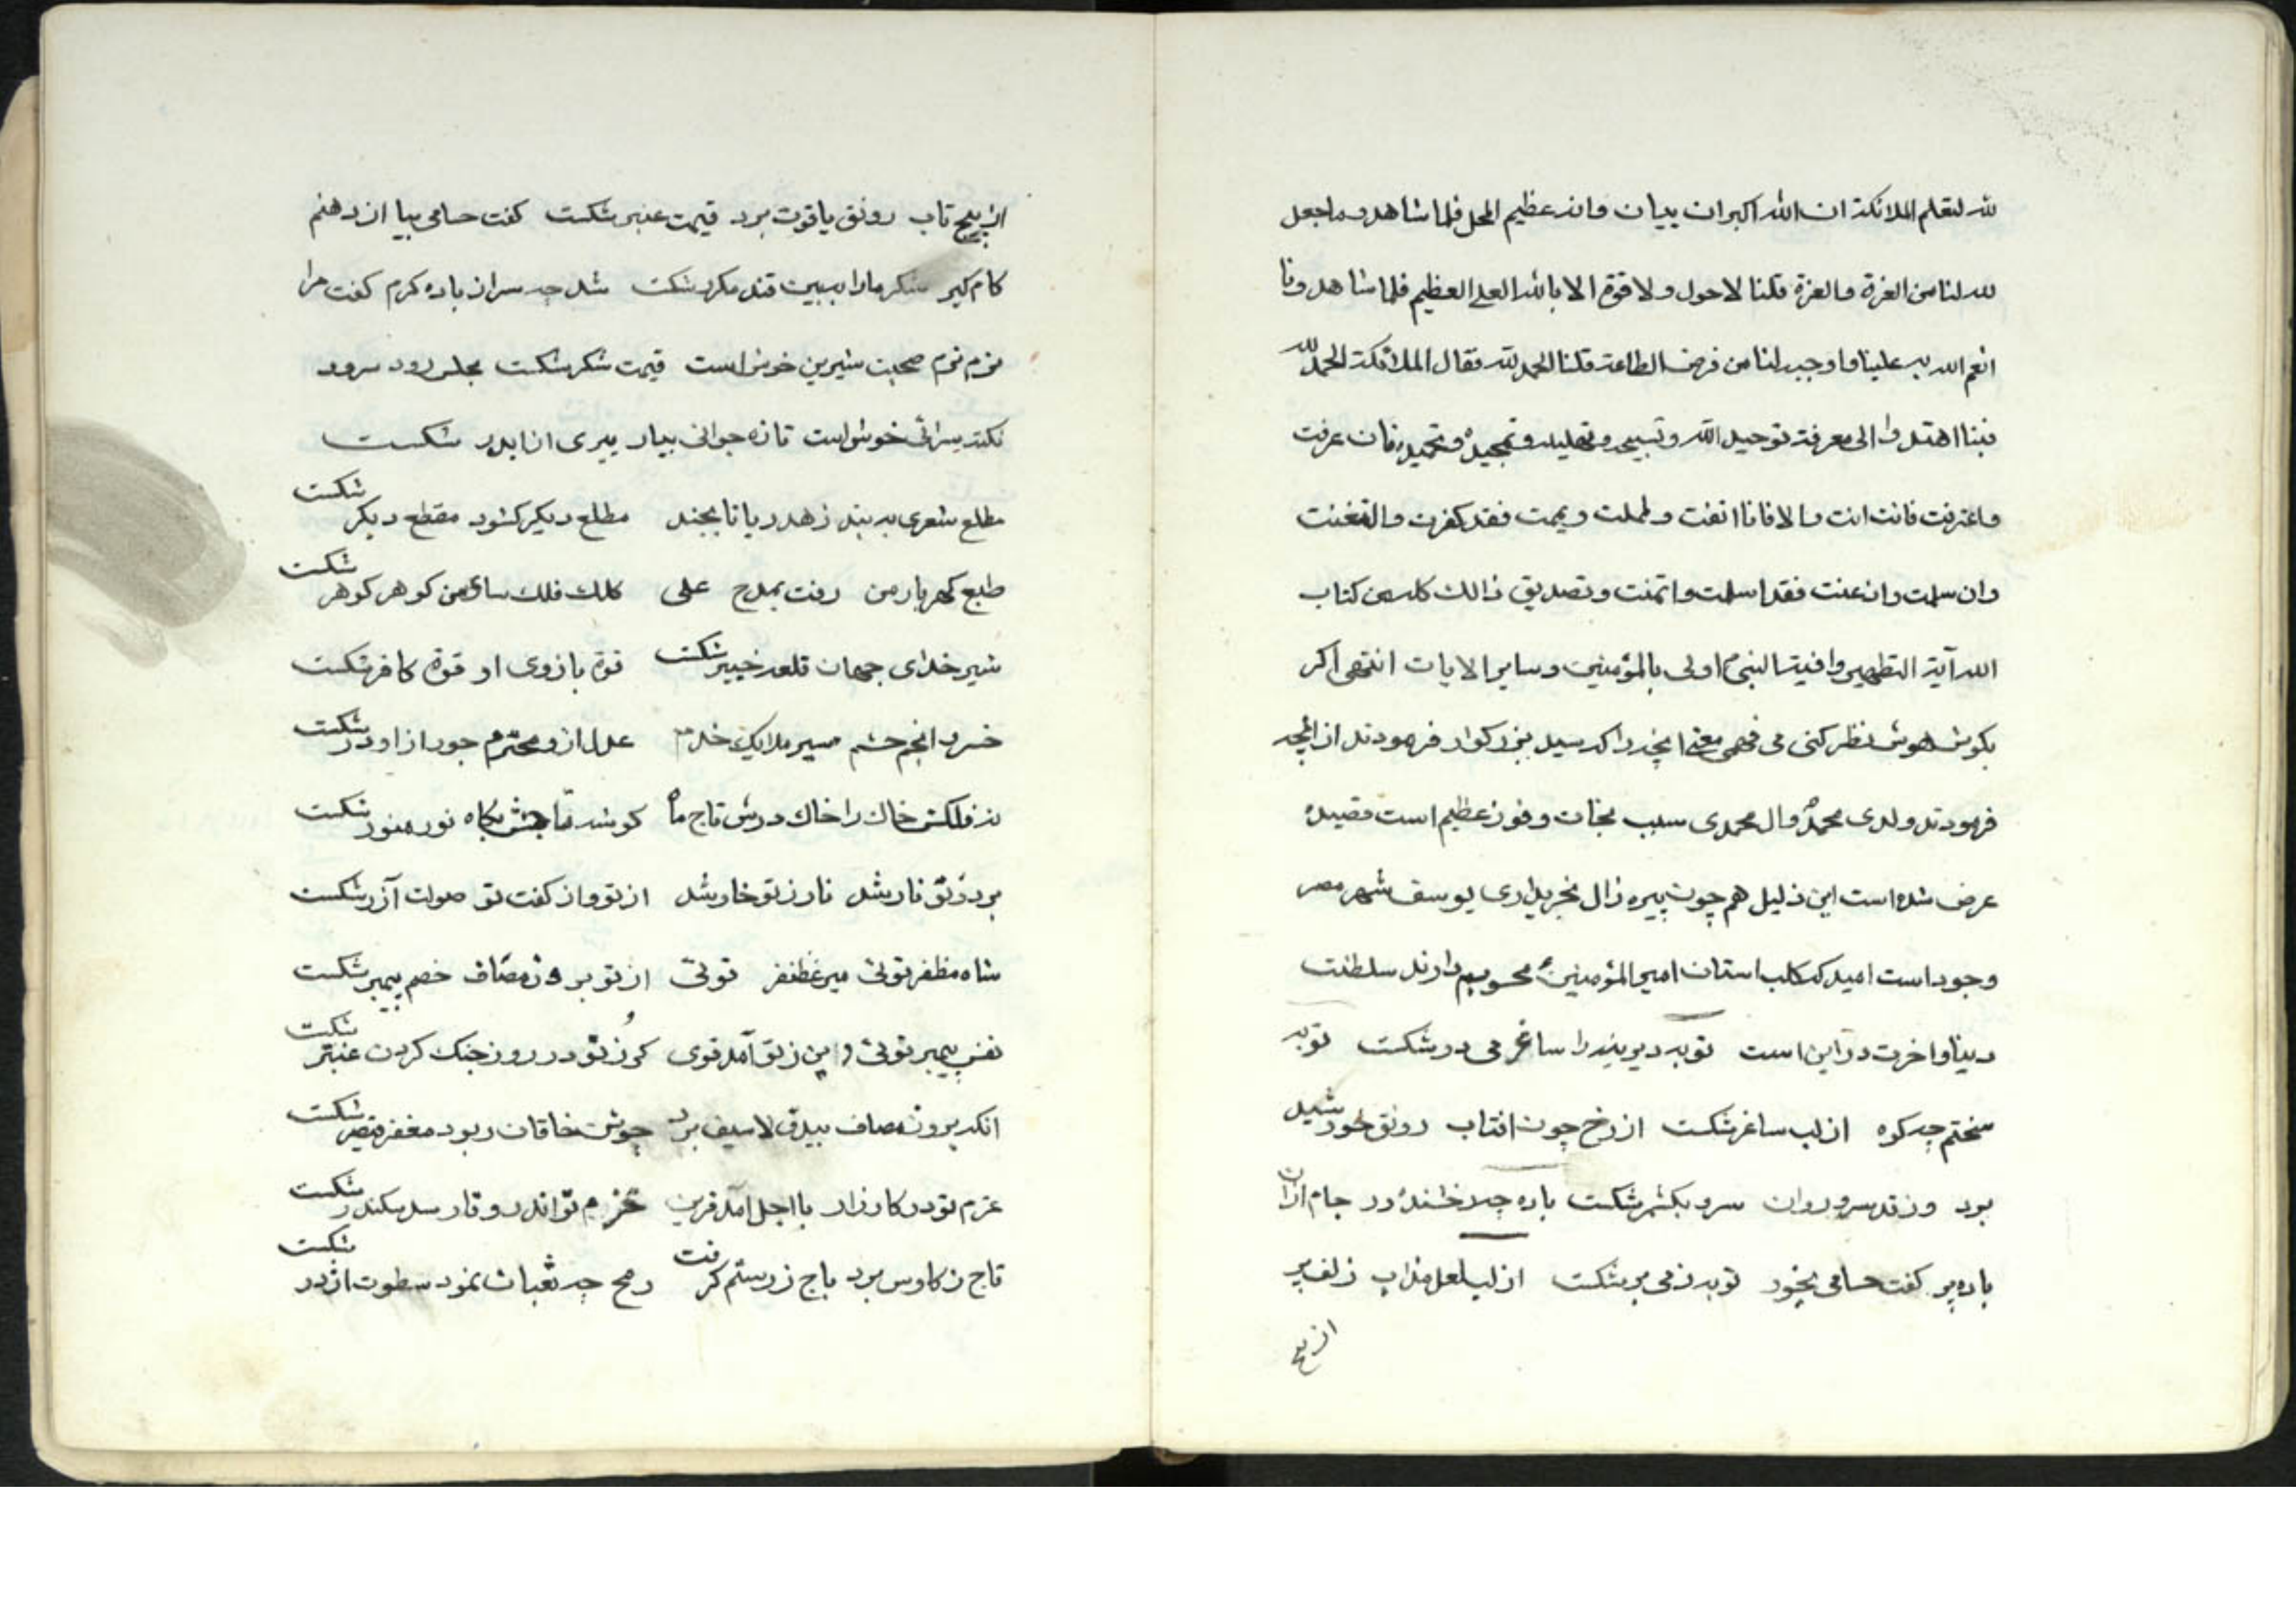 لله لتعلم الملائكة ان الله اكبر ان بيان وانه عظيم المحل فلما شاهدو ما جعل
لله لنا من العزة والعزة قلنا لا حول ولا قوة الا بالله العلى العظيم فلما شاهدو فا
انعم الله به علينا و اوجبه لنا من فرض الطاعة قلنا الحمد لله فقال الملائكة الحمد لله
فبنا اهتدوا الى معرفة توحيد الله و تسبيحه و تهليله و تمجيده و تحميده فان عرفت
واعترفت فانت انت والا فانا انفت و فقد كفرت و
وان سلمت واذعنت فقد اسلمت و اتمنت و تصديق ذالك كله من كتاب
الله آية التطهير وافية النبى اولى بالمؤمنين و ساير الايات انتهى اكر
بكوش هوش نظر كنى مى فهمى معنى انچه را كه سيد بزركوار فرمودند از انجه
فرمودند ولدى محمد و ال محمدى سبب نجات و فوز عظيم است قصيده
عرض شده است اين ذليل هم چون پيره زال بخريدارى يوسف شهر مصر
وجود است اميد كه كلب استان امير المؤمنين محسوبم دارند سلطنت
دينا و اخرت در اين است توبه ديرينه را ساغر مى در شكست توبه
سختم چه كوه از لب ساغر شكست از رخ چون افتاب رونق خورشيد
برد وز قد سرو روان سرو بكشمر شكست باده چه رخشنده در جام ازان
باده پر كفت حسامى بخور توبه ز مى بر شكست از لب لعل مذاب زلف پر
از پيچ
از پيچ تاب رونق ياقوت برد قيمت عنبر شكست كفت حسامى بيا از دهنم
كام كير شكر مارا ببين قند مكرر شكست شد چه سر از باده كرم كفت مرا
نرم نرم صحبت شيرين خوش است قيمت شكر شكست مجلس رود سرود
نكته سرائى خوش است تازه جوانى بيار پيرى ازا بدر شكست
مطلع شعرى به بند زهد ريا تا بجند مطلع ديكر كشود مقطع ديكر شكست
طبع كهر بار من رفت بمدح على كلك فلك ساى من كوهر كوهر شكست
شير خداى جهان قلعه خيبر شكست قوة بازوى او قوة كافر شكست
خسرو انجم حشم مير ملايك خدم عدل ازو محترم جور از او در شكست
نه فلكش خاك را خاك درش تاج ما كوشه تاجش بكاه نور منور شكست
برد ز تو نار شد نار ز تو خار شد از تو و از كفت تو صولت آزر شكست
شاه مظفر توئى مير غظنفر توئى از تو بروز مصاف خصم پيمبر شكست
نفس پيمبر توئى دين ز تو آمد قوى كز تو در روز جنك كردن عنتر شكست
انكه بروز مصاف بيدق لا سيف برد جوشن خاقان ربود مغفر قيصر شكست
عزم تو در كارزار با اجل آمد قرين حزم تو اندر وقار سد سكندر شكست
تاج ز كاوس برد باج ز رستم كرفت رمح چه ثعبان نمود سطوت اژدر شكست